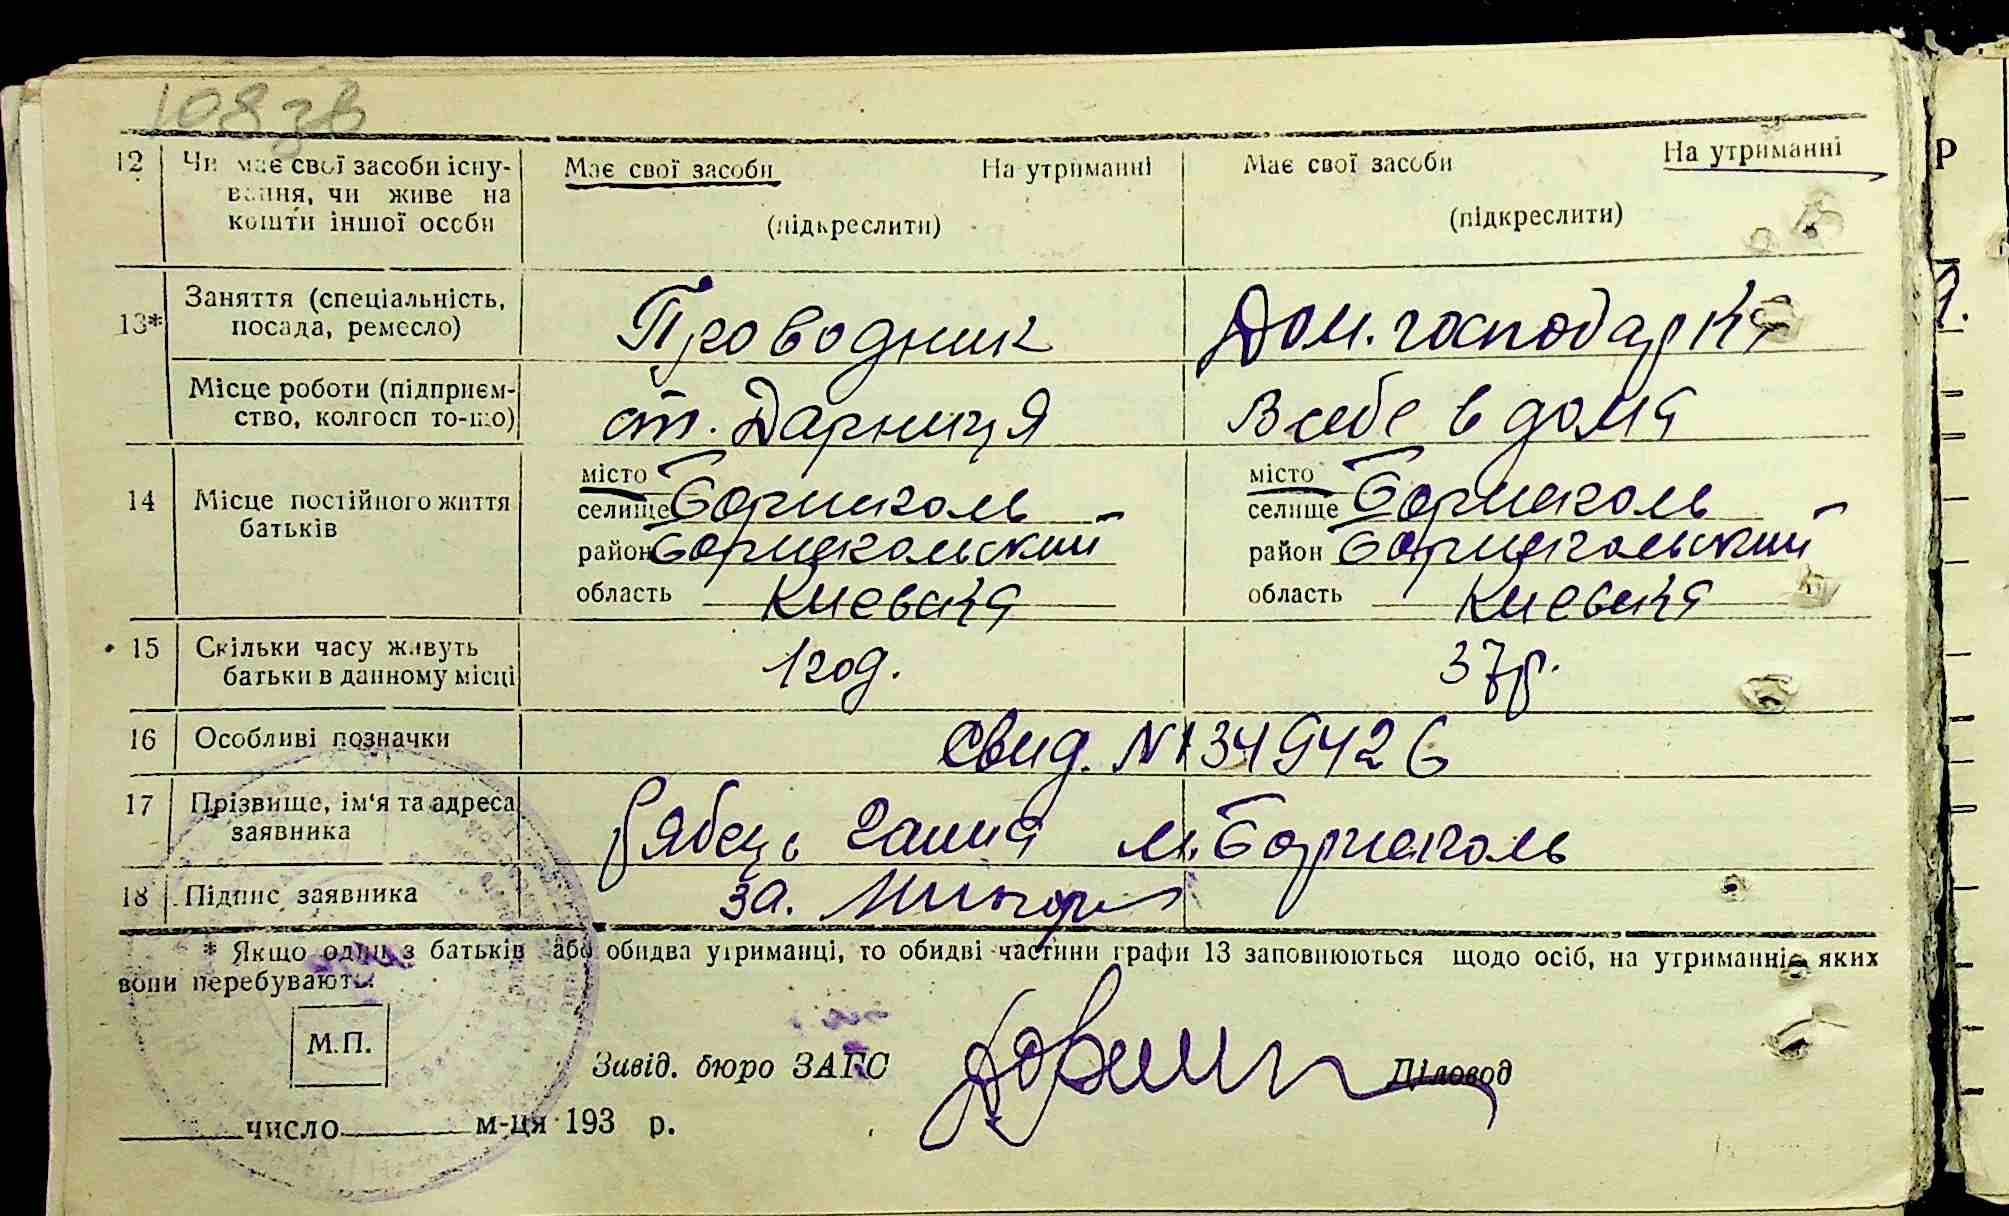 108 зв
12 Чи має свої засоби існу- Має свої засоби На утриманні Має свої засоби На утриманні
вання, чи живе на
кошти іншої особи (підкреслити) (підкреслити)
13* Заняття (спеціальність, посада, ремесло) Проводник Дом. господарка
Місце роботи (підприєм-
ство, колгосп то-що) ст. Дарниця В себе в дома
14 Місце постійного життя батьків
місто місто
селище Бориспіль селище Бориспіль
район Бориспольский район Бориспольский
область Киевска область Киевска
15 Скільки часу живуть
батьки в данному місці 1 год. 37 р.
16 Особливі позначки Свид. № 349426
17 Прізвище, ім'я та адреса
заявника Рябець Ганна м. Бориспіль
18 Підпис заявника за.
* Якщо один з батьків або обидва утриманці, то обидві частини графи 13 заповнюються щодо осіб, на утриманні яких
вони перебувають.
М.П.
Завід. бюро ЗАГС Діловод
число м-ця 193 р.